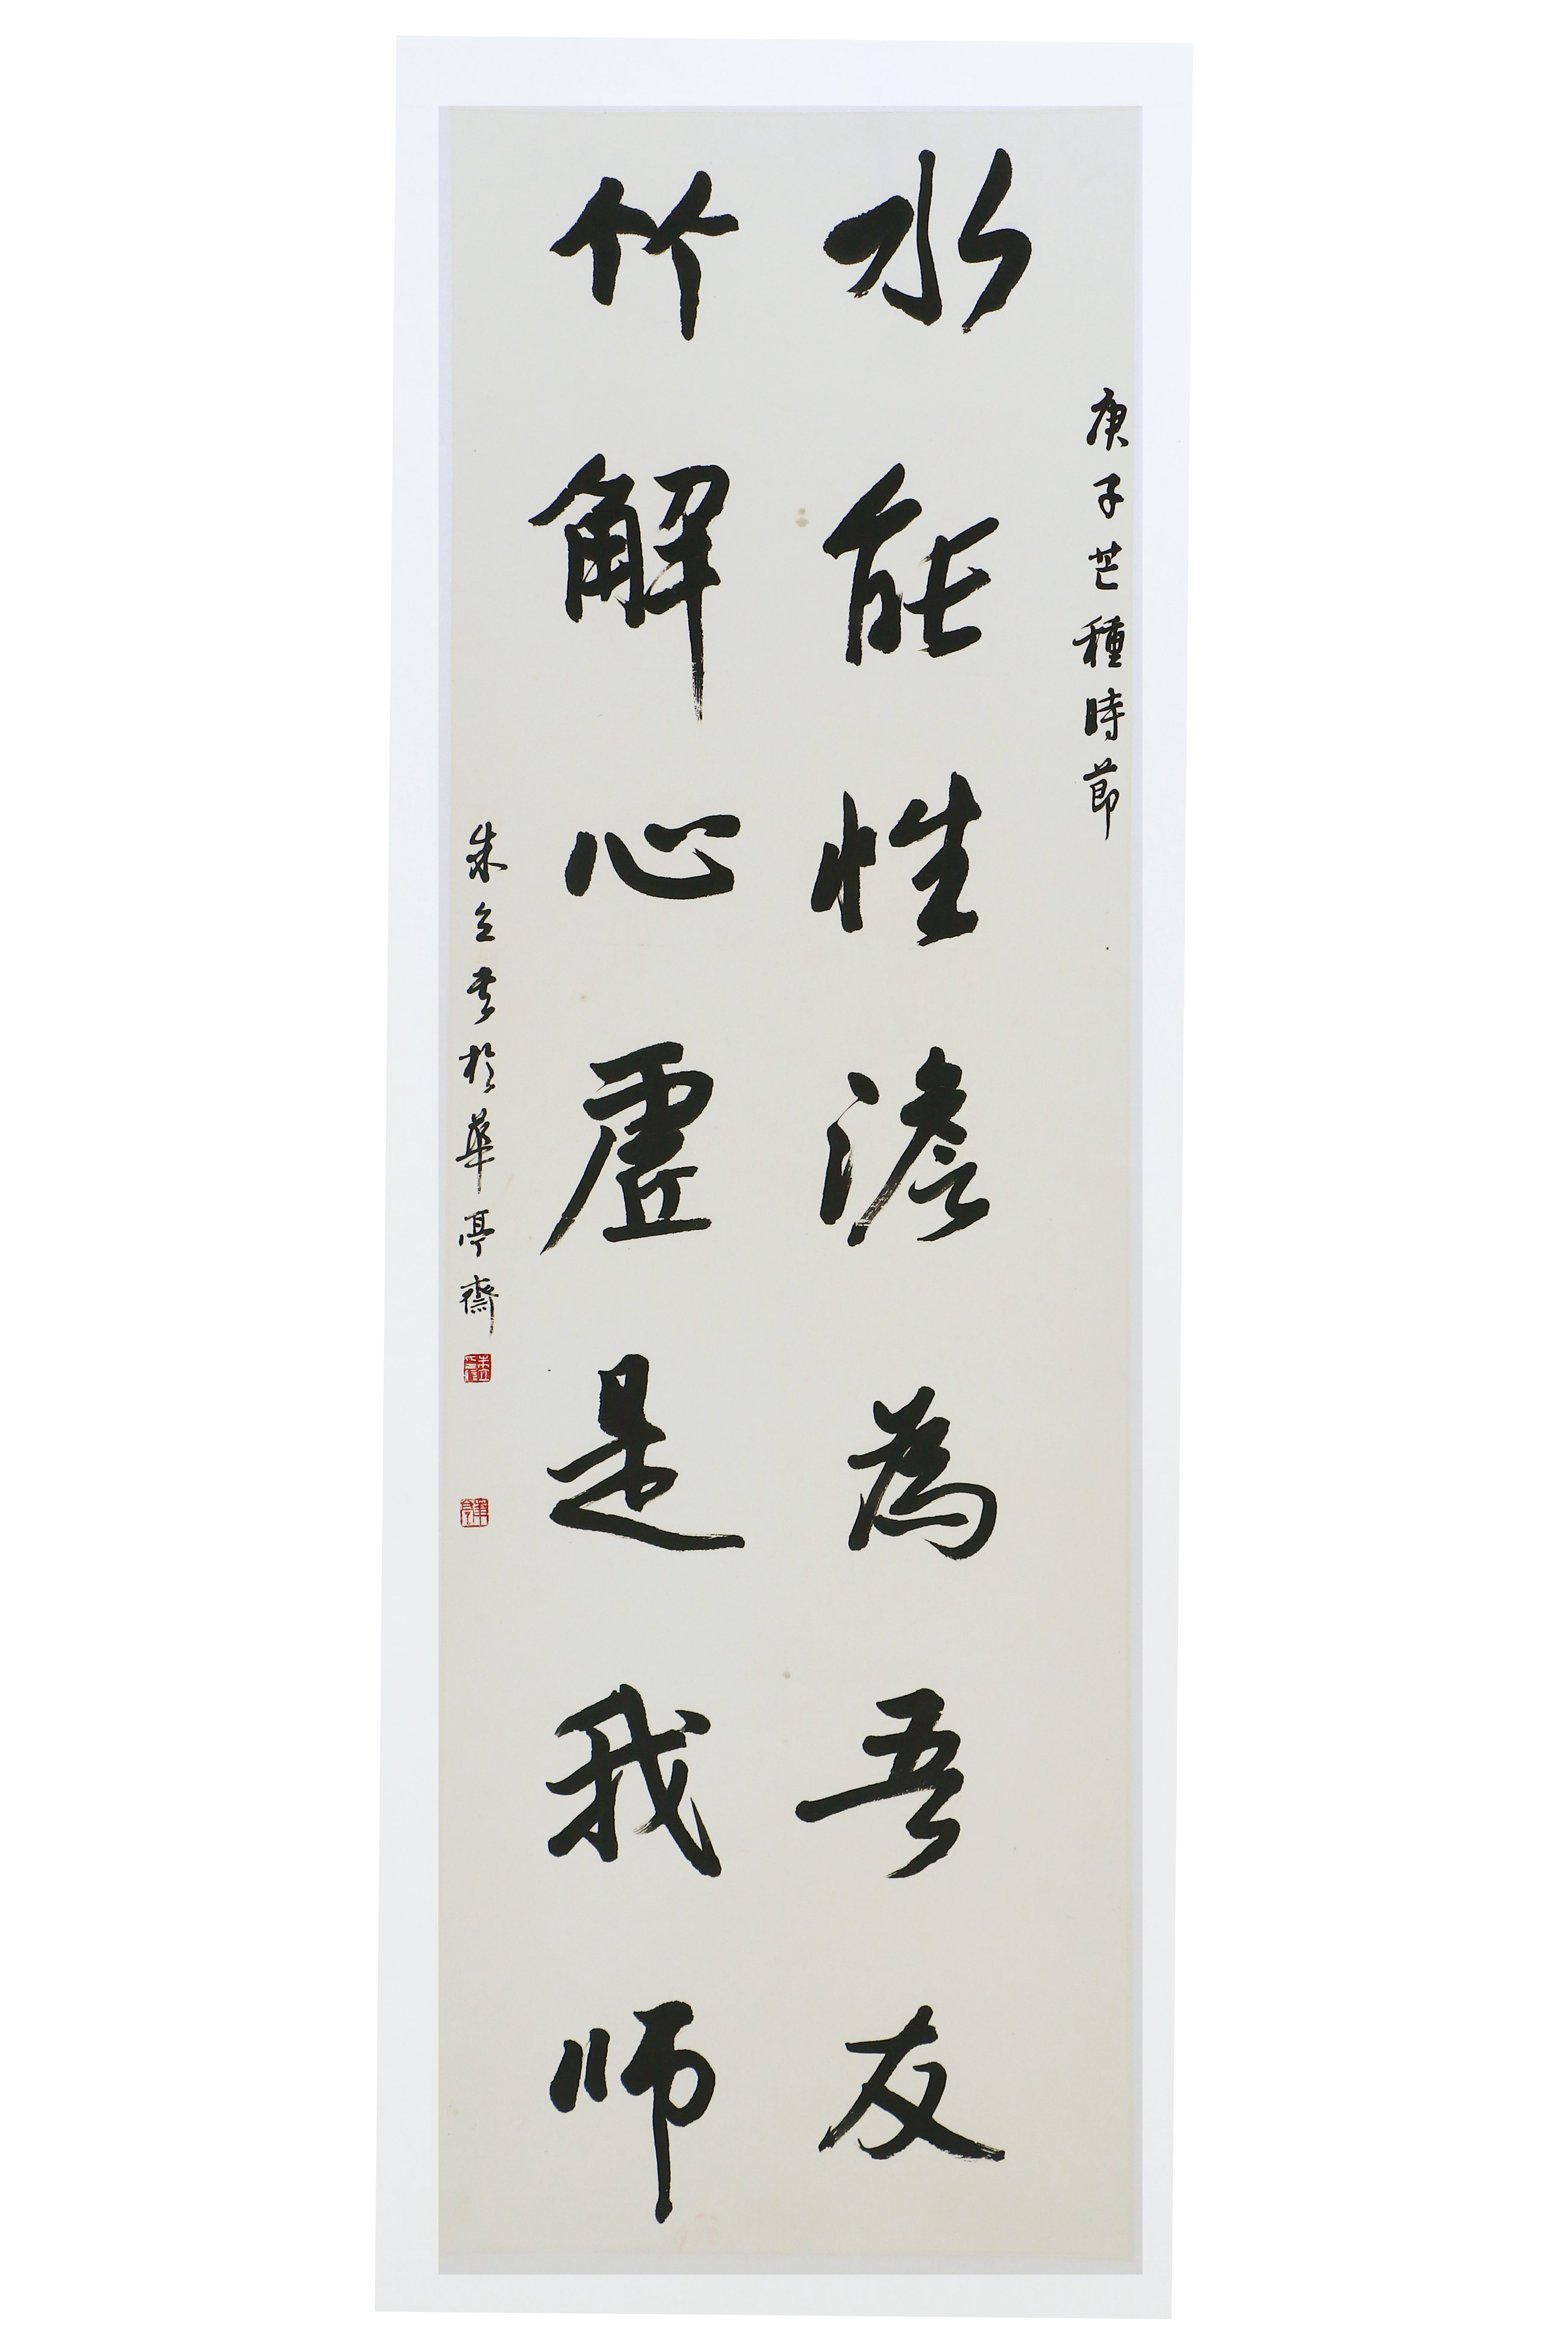 庚子芒種時節
水能性澹為吾友
竹解心虛是我师
朱立书於華亭齋